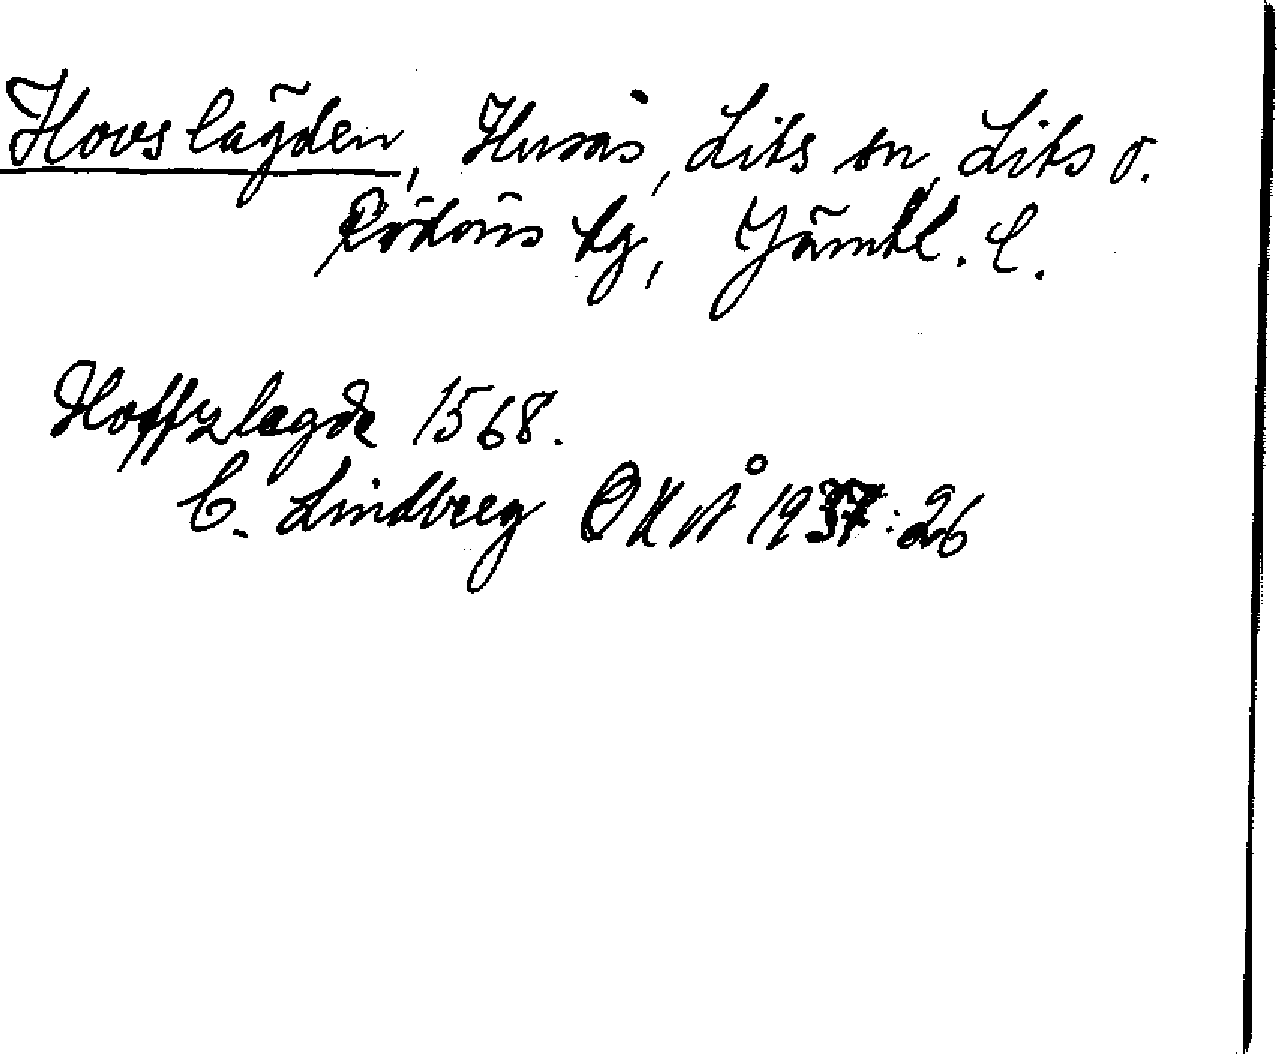 Hovslägden, Husås, Lits sn, Lits o.
Rödöns tg, Jämtl. l.
Hoffzlegde 1568.
C. Lindberg OKNÅ 1937:26